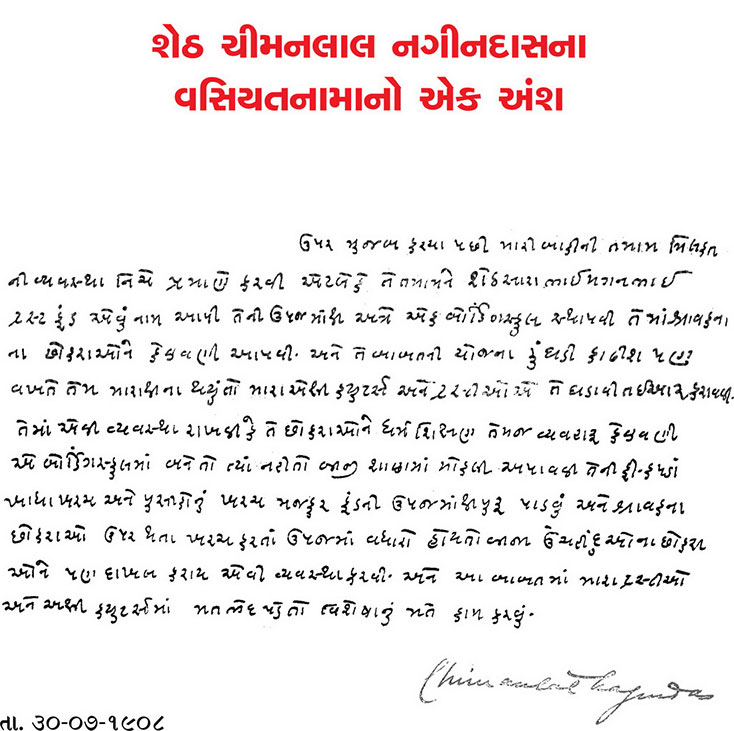 શેઠ ચીમનલાલ નગીનદાસના
વસિયતનામાનો એક અંશ
ઉપર મુજબ કરયા પછી મારી બાકીની તમામ મિલકત
ની વ્યવસ્થા નિચે પ્રમાણે કરવી એટલેકે તેતમામને શેઠ સારાભાઈ મગનભાઈ
ટ્રસ્ટ ફંડ એવું નામ આપી તેની ઉપજમાંથી અત્રે એક બોર્ડિંગસ્કુલ સ્થાપવી તેમાં શ્રાવકના
ના છોકરાઓને કેળવણી આપવી. અને તે બાબતની યોજના હું ઘડી કાઢીશ પણ
વખતે તેમ મારાથીના થયુંતો મારા એક્ષી ક્યુટર્સ અને ટ્રસ્ટીઓએ તે ઘડાવી તઈઆર કરાવવી.
તેમાં એવી વ્યવસ્થા રાખવી કે તે છોકરાઓને ધર્મ શિક્ષણ તેમજ વ્યવહારુ કેળવણી
એ બોર્ડિંગસ્કુલમાં બનેતો ત્યાં નહીતો બીજી શાળામાં મોકલી અપાવવી તેની ફી. કપડાં
ખાધા ખરચ અને પુસ્તકોનું ખરચ મજકુર ફંડની ઉપજમાંથી પુરૂ પાડવું અને શ્રાવકના
છોકરાઓ ઉપર થતા ખરચ કરતાં ઉપજમાં વધારો હોયતો બીજા હિંદુઓના છોકરા
ઓને પણ દાખલ કરાય એવી વ્યવસ્થા કરવી. અને આ બાબતમાં મારા ટ્રસ્ટીઓ
અને એક્ષી ક્યુટર્સમાં મતભેદ પડેતો વિશેષાનું મતે કામ કરવું.
Chimanlal Nagindas
તા. ૩૦-૦૭-૧૯૦૮